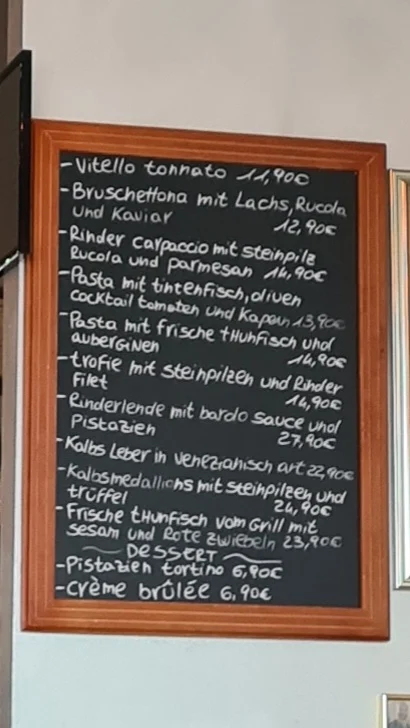 -Vitello tonnato 11,90€
-Bruschettona mit Lachs, Rucola
und Kaviar 12,90€
-Rinder carpaccio mit steinpilz
Rucola und parmesan 14,90€
-Pasta mit tintenfisch, oliven
cocktail tomaten und Kapern 13,90€
-Pasta mit frische tHunfisch und
auberginen 14,90€
-trofie mit steinpilzen und Rinder
Filet 14,90€
-Rinderlende mit barolo sauce und
Pistazien 27,90€
-Kalbs Leber in venezianisch art 22,90€
-Kalbsmedallions mit steinpilzen und
trüffel 24,90€
-Frische tHunfisch vom Grill mit
sesam und Rote zwiebeln 23,90€
DESSERT
-Pistazien tortino 6,90€
-crème brûlée 6,90€